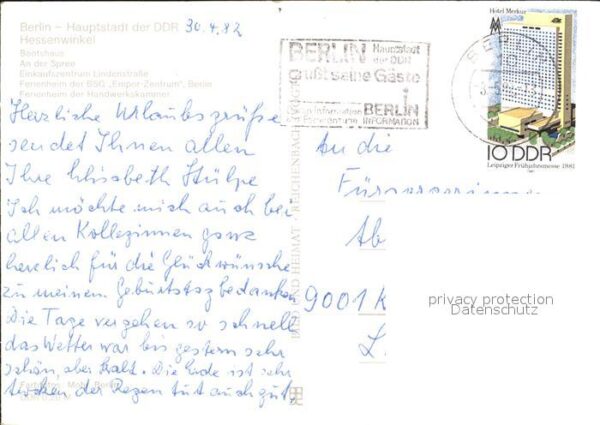 Berlin - Hauptstadt der DDR 30.4.82
Hessenwinkel
Bootshaus
An der Spree
Einkaufszentrum Lindenstraße
Ferienheim der BSG „Empor-Zentrum“, Berlin
Ferienheim der Handwerkskammer
Herzliche Urlaubsgrüße
sendet Ihnen allen
Ihre Elisabeth Stülpe
Ich möchte mich auch bei
allen Kolleginnen ganz
herzlich für die Glückwünsche
zu meinem Geburtstag bedanken
Die Tage vergehen so schnell
das Wetter war bis gestern sehr
schön, aber kalt. Die Erde ist sehr
trocken der Regen tut auch gut,
BERLIN Hauptstadt
der DDR
grüßt seine Gäste
i
Information BERLIN
INFORMATION
BERLIN
Hotel Merkur
10 DDR
Leipziger Frühjahrsmesse 1981
BILD UND HEIMAT REICHENBACH
An die
Ab
9001 K
L.
privacy protection
Datenschutz